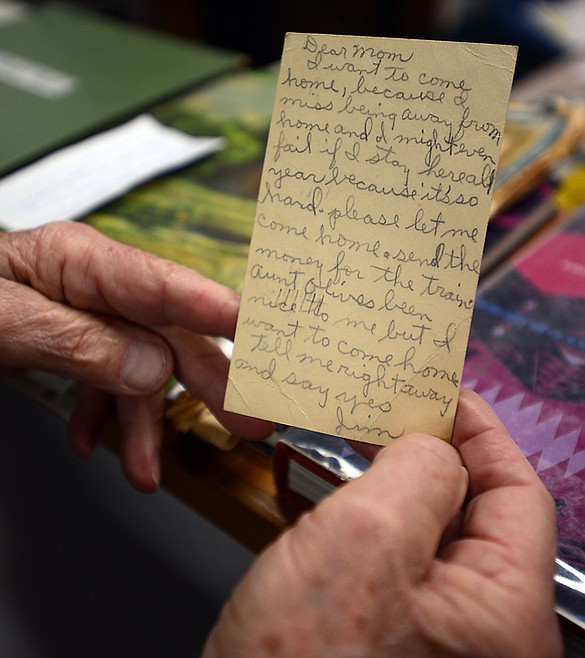 Dear Mom
I want to come
home, because I
miss being away from
home and I might even
fail if I stay here all
year because it's so
hard. please let me
come home. send the
money for the train
aunt olives been
nice !!!! to me but I
want to come home
tell me right away
and say yes
Jim